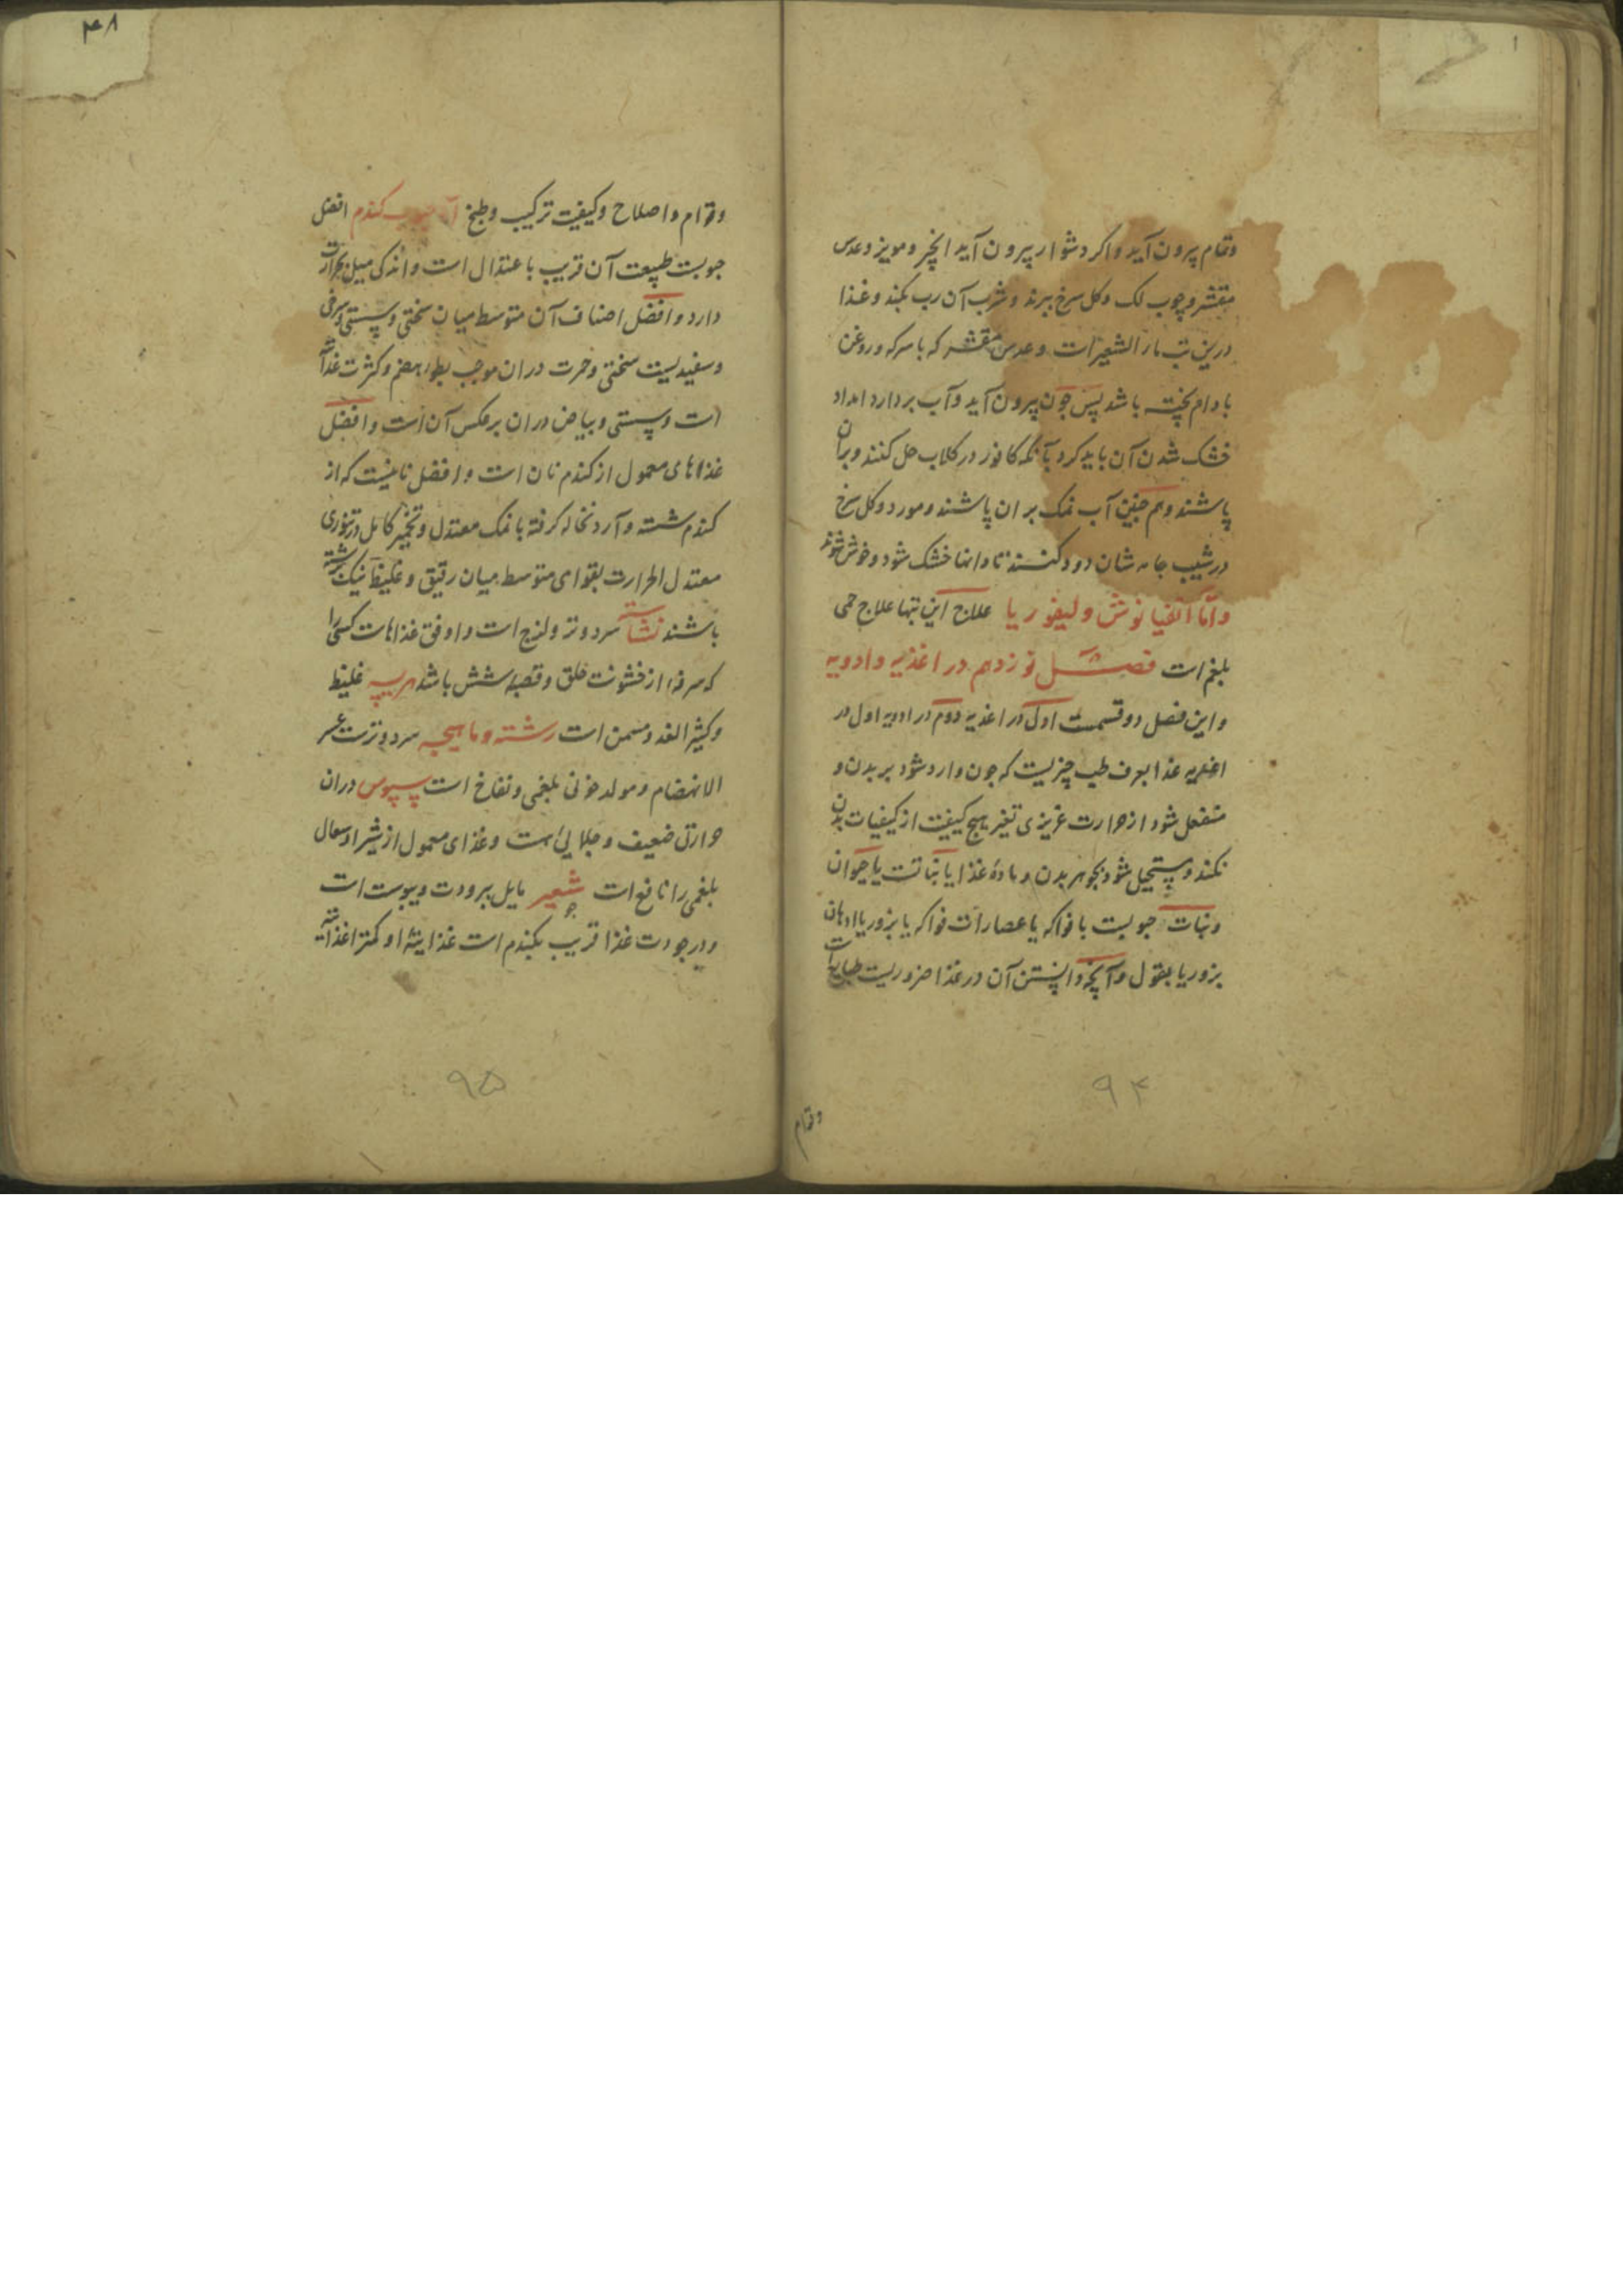 وتمام پرون آید واکر دشوار پیرون آید انجیر ومویز وعدس
مقشر وچوب لک وکل سرخ ببزند وشرب آن رب بکند وغذا
درین تب مار الشعیرات وعدس مقشر که با سرکه وروغن
بادام پخته باشد پس چون پیرون آید وآب بردارد امداد
خشک شدن آن باید کرد بآنکه کافور در کلاب حل کنند وبران
پاشند وهم جنین آب نمک بران پاشند ومورد وکل سرخ
درشیب جامه شان دود کنند تا دانها خشک شود وخوش شوند
واما انفیا نوش ولیفوریا علاج این تبها علاج حمی
بلغم است فصل نوزدهم در اغذیه وادویه
واین فصل دو قسمت اول در اغذیه دوم در ادویه اول در
اغذیه غذا بعرف طب چیزیست که جون وارد شود بر بدن و
منفعل شود از حرارت غریزی تغیر بهیج کیفیت از کیفیات بدن
نکند ومستحیل شود بجوهر بدن ومادهٔ غذا یا نباتست یا حیوان
ونبات حبوبست یا فواکه یا عصارات فواکه یا بزور یا ادهان
بزور یا بقول وآنچه دانستن آن در غذا ضروریست طبایع است
۹۴
وقوام
۴۸
وقوام واصلاح وکیفیت ترکیب وطبخ آن حبوب کندم افضل
حبوبست طبیعت آن قریب باعتدال است واندکی میل بحرارت
دارد وافضل اصناف آن متوسط میان سختی وسستی وسرخی
وسفیدیست سختی وحمرت دران موجب بطوء هضم وکثرت غذا
است وسستی وبیاض دران برعکس آن است وافضل
غذاهای معمول از کندم نان است وافضل نانیست که از
کندم شسته وآرد نخاله کرفته با نمک معتدل وتخمیر کامل در تنوری
معتدل الحرارت بقوامی متوسط میان رقیق وغلیظ نیک برشته
باشند نشاسته سرد وتر ولزج است واوفق غذاهات کسی را
که سرفه از خشونت حلق وقصبه شش باشد هریسه غلیظ
وکثیر الغذ ومسمن است رشته وماهیجه سرد وترست عسر
الانهضام ومولد خونی بلغمی ونفاخ است سپوس دران
حرارتی ضعیف وجلایی هست وغذای معمول از شیر او سعال
بلغمی را نافع است شعیر مایل ببرودت ویبوست است
جو
ودر جودت غذا قریب بکندم است غذاییته او کمتر اغذیه
۹۵